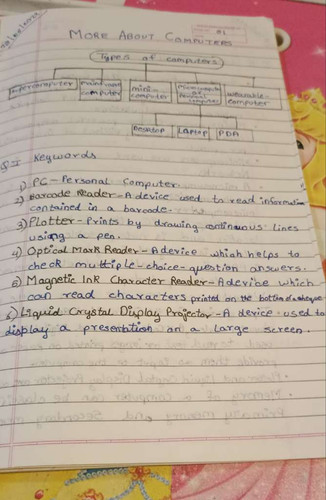 MORE ABOUT COMPUTERS
Types of computers
Supercomputer
Mainframe computer
mini computer
Microcomputer or Personal computer
wearable computer
Desktop LAPTOP PDA
Q-1 Keywords
1) PC - Personal Computer
2) Barcode Reader - A device used to read information
contained in a barcode.
3) Plotter - Prints by drawing continuous lines
using a pen.
4) Optical Mark Reader - A device which helps to
check multiple-choice-question answers.
5) Magnetic Ink Character Reader - A device which
can read characters printed on the bottom of a cheque.
6) Liquid Crystal Display Projector - A device used to
display a presentation on a large screen.